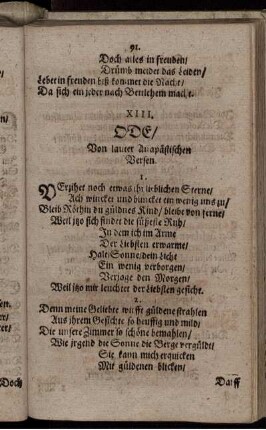 91.
Doch alles in freuden/
Drümb meidet das Leiden/
Lebet in freuden biß kommet die Nacht/
Da sich ein jeder nach Bettehem macht.
XIII.
ODE/
Von lauter Anapästischen
Versen.
1.
VErziehet noch etwas ihr lieblichen Sterne/
Ach wincket und blincket ein wenig uns zu/
Bleib Röthin du güldnes Kind/ bleibe von ferne/
Weil itzo sich findet die süsseste Ruh/
In dem ich im Arme
Der Liebsten erwarme/
Halt/ Sonne/ dein Licht
Ein wenig verborgen/
Verjage den Morgen/
Weil itzo mir leuchtet der Liebsten gesicht.
2.
Denn meine Geliebte wirfft güldene strahlen
Aus ihrem Gesichte so heuffig und mild/
Die unsere Zimmer so schöne bemahlen/
Wie jrgend die Sonne die Berge vergüldt/
Sie kann mich erquicken
Mit güldenen blicken/
Darff